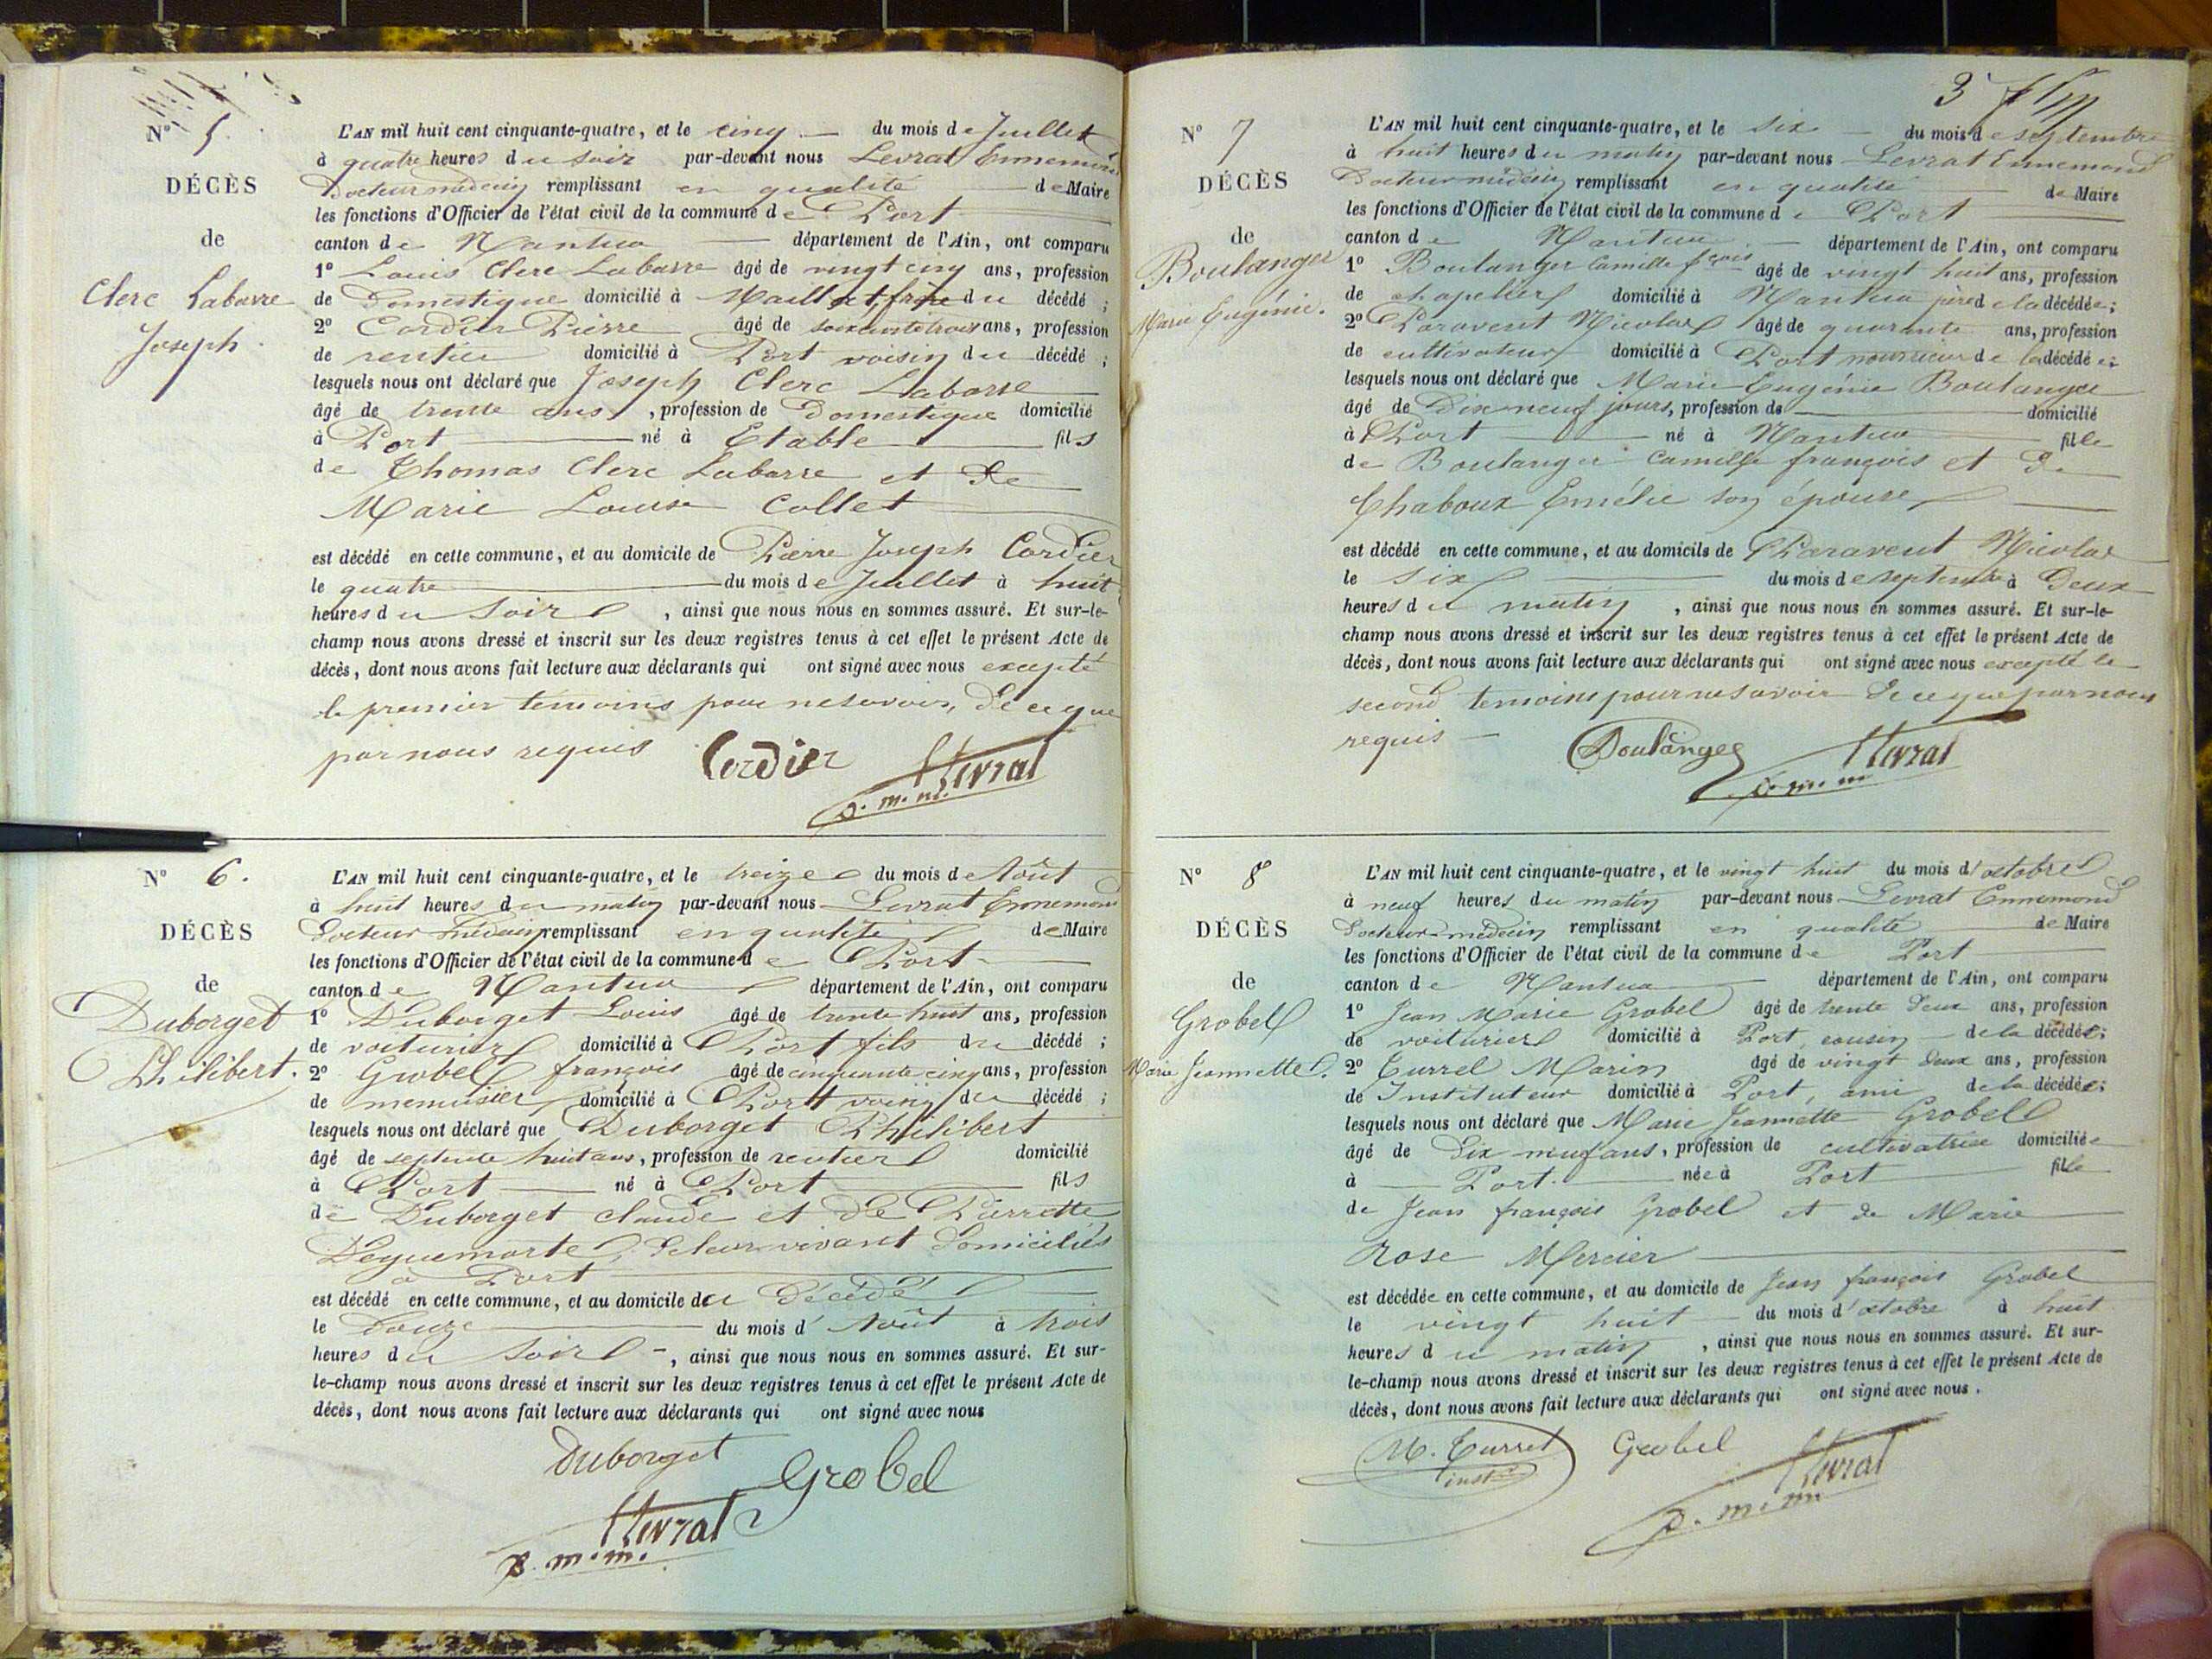 N° 5.
DÉCÈS
de
Clerc Labarre
Joseph.
L'AN mil huit cent cinquante-quatre, et le cinq du mois de Juillet
à quatre heures du soir par-devant nous Levrat Ennemond
Docteur médecin remplissant en qualité de Maire
les fonctions d'Officier de l'état civil de la commune de Port
canton de Nantua département de l'Ain, ont comparu
1° Louis Clerc Labarre âgé de vingt cinq ans, profession
de Domestique domicilié à Maillat, frère du décédé ;
2° Cordier Pierre âgé de soixante trois ans, profession
de rentier domicilié à Port voisin du décédé ;
lesquels nous ont déclaré que Joseph Clerc Labarre
âgé de trente ans, profession de Domestique domicilié
à Port né à Etable fils
de Thomas Clerc Labarre et de
Marie Louise Collet
est décédé en cette commune, et au domicile de Pierre Joseph Cordier
le quatre du mois de Juillet à huit
heures du soir, ainsi que nous nous en sommes assuré. Et sur-le-
champ nous avons dressé et inscrit sur les deux registres tenus à cet effet le présent Acte de
décès, dont nous avons fait lecture aux déclarants qui ont signé avec nous excepté
le premier témoins pour ne savoir, de ce que
par nous requis Cordier Levrat
d. m. m.
N° 6.
DÉCÈS
de
Duborget
Philibert.
L'AN mil huit cent cinquante-quatre, et le treize du mois de Août
à huit heures du matin par-devant nous Levrat Ennemond
Docteur médecin remplissant en qualité de Maire
les fonctions d'Officier de l'état civil de la commune de Port
canton de Nantua département de l'Ain, ont comparu
1° Duborget Louis âgé de trente huit ans, profession
de voiturier domicilié à Port fils du décédé ;
2° Grobel françois âgé de cinquante cinq ans, profession
de menuisier domicilié à Port voisin du décédé ;
lesquels nous ont déclaré que Duborget Philibert
âgé de septente huit ans, profession de rentier domicilié
à Port né à Port fils
de Duborget claude et de Pierrette
de leur vivant domiciliés
à Port
est décédé en cette commune, et au domicile du décédé
le Douze du mois d'Août à trois
heures du soir, ainsi que nous nous en sommes assuré. Et sur-
le-champ nous avons dressé et inscrit sur les deux registres tenus à cet effet le présent Acte de
décès, dont nous avons fait lecture aux déclarants qui ont signé avec nous
Duborget
Grobel
Levrat
d. m. m.
3
N° 7
DÉCÈS
de
Boulanger
Marie Eugénie.
L'AN mil huit cent cinquante-quatre, et le six du mois de septembre
à huit heures du matin par-devant nous Levrat Ennemond
Docteur médecin remplissant en qualité de Maire
les fonctions d'Officier de l'état civil de la commune de Port
canton de Nantua département de l'Ain, ont comparu
1° Boulanger Camille fçois âgé de vingt huit ans, profession
de chapelier domicilié à Nantua père de la décédée ;
2° Paravent Nicolas âgé de quarante ans, profession
de cultivateur domicilié à Port nourricier de la décédée ;
lesquels nous ont déclaré que Marie Eugénie Boulanger
âgé de Dix neuf jours, profession de domicilié
à Port né à Nantua fille
de Boulanger Camille françois et de
Chaboux Emélie son épouse
est décédé en cette commune, et au domicile de Paravent Nicolas
le six du mois de septembre à Deux
heures du matin, ainsi que nous nous en sommes assuré. Et sur-le-
champ nous avons dressé et inscrit sur les deux registres tenus à cet effet le présent Acte de
décès, dont nous avons fait lecture aux déclarants qui ont signé avec nous excepté le
second temoins pour ne savoir de ce que par nous
requis Boulanger Levrat
d. m. m
N° 8
DÉCÈS
de
Grobel
Marie Jeannette.
L'AN mil huit cent cinquante-quatre, et le vingt huit du mois d'octobre
à neuf heures du matin par-devant nous Levrat Ennemond
Docteur médecin remplissant en qualité de Maire
les fonctions d'Officier de l'état civil de la commune de Port
canton de Nantua département de l'Ain, ont comparu
1° Jean Marie Grobel âgé de trente deux ans, profession
de voiturier domicilié à Port, cousin de la décédée ;
2° Turrel Marin âgé de vingt deux ans, profession
de Instituteur domicilié à Port, ami de la décédée ;
lesquels nous ont déclaré que Marie Jeannette Grobel
âgé de Dix neuf ans, profession de cultivatrice domiciliée
à Port. née à Port fille
de Jean françois Grobel et de Marie
Rose Mercier
est décédée en cette commune, et au domicile de Jean françois Grobel
le vingt huit du mois d'octobre à huit
heures du matin, ainsi que nous nous en sommes assuré. Et sur-
le-champ nous avons dressé et inscrit sur les deux registres tenus à cet effet le présent Acte de
décès, dont nous avons fait lecture aux déclarants qui ont signé avec nous.
M. Turrel Grobel Levrat
instr
d. m. m